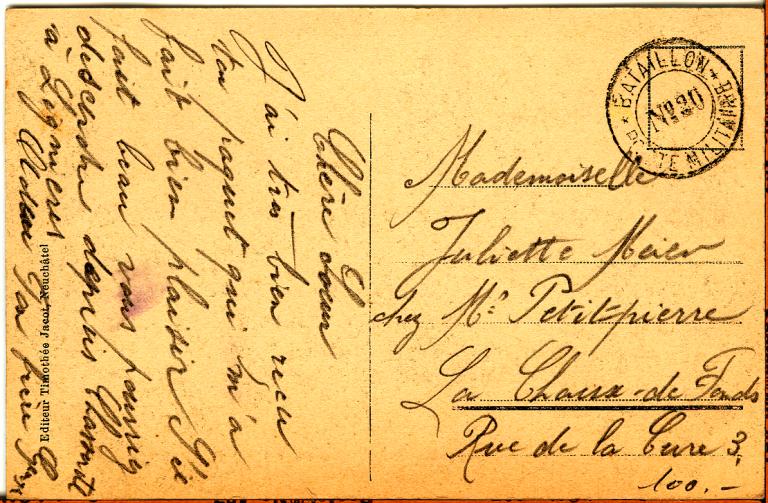 Chère Soeur
J'ai très bien reçu
ton paquet qui m'a
fait bien plaisir S'il
fait beau vous pourriez
descendre depuis
à Lignières
Adieu Ton frère
Editeur Timothée Jacot Neuchâtel
* BATAILLON * POSTE MILITAIRE
No 20
Mademoiselle
Juliette Meier
chez Mr Petitpierre
La Chaux-de-Fonds
Rue de la Cure 3.
100.-